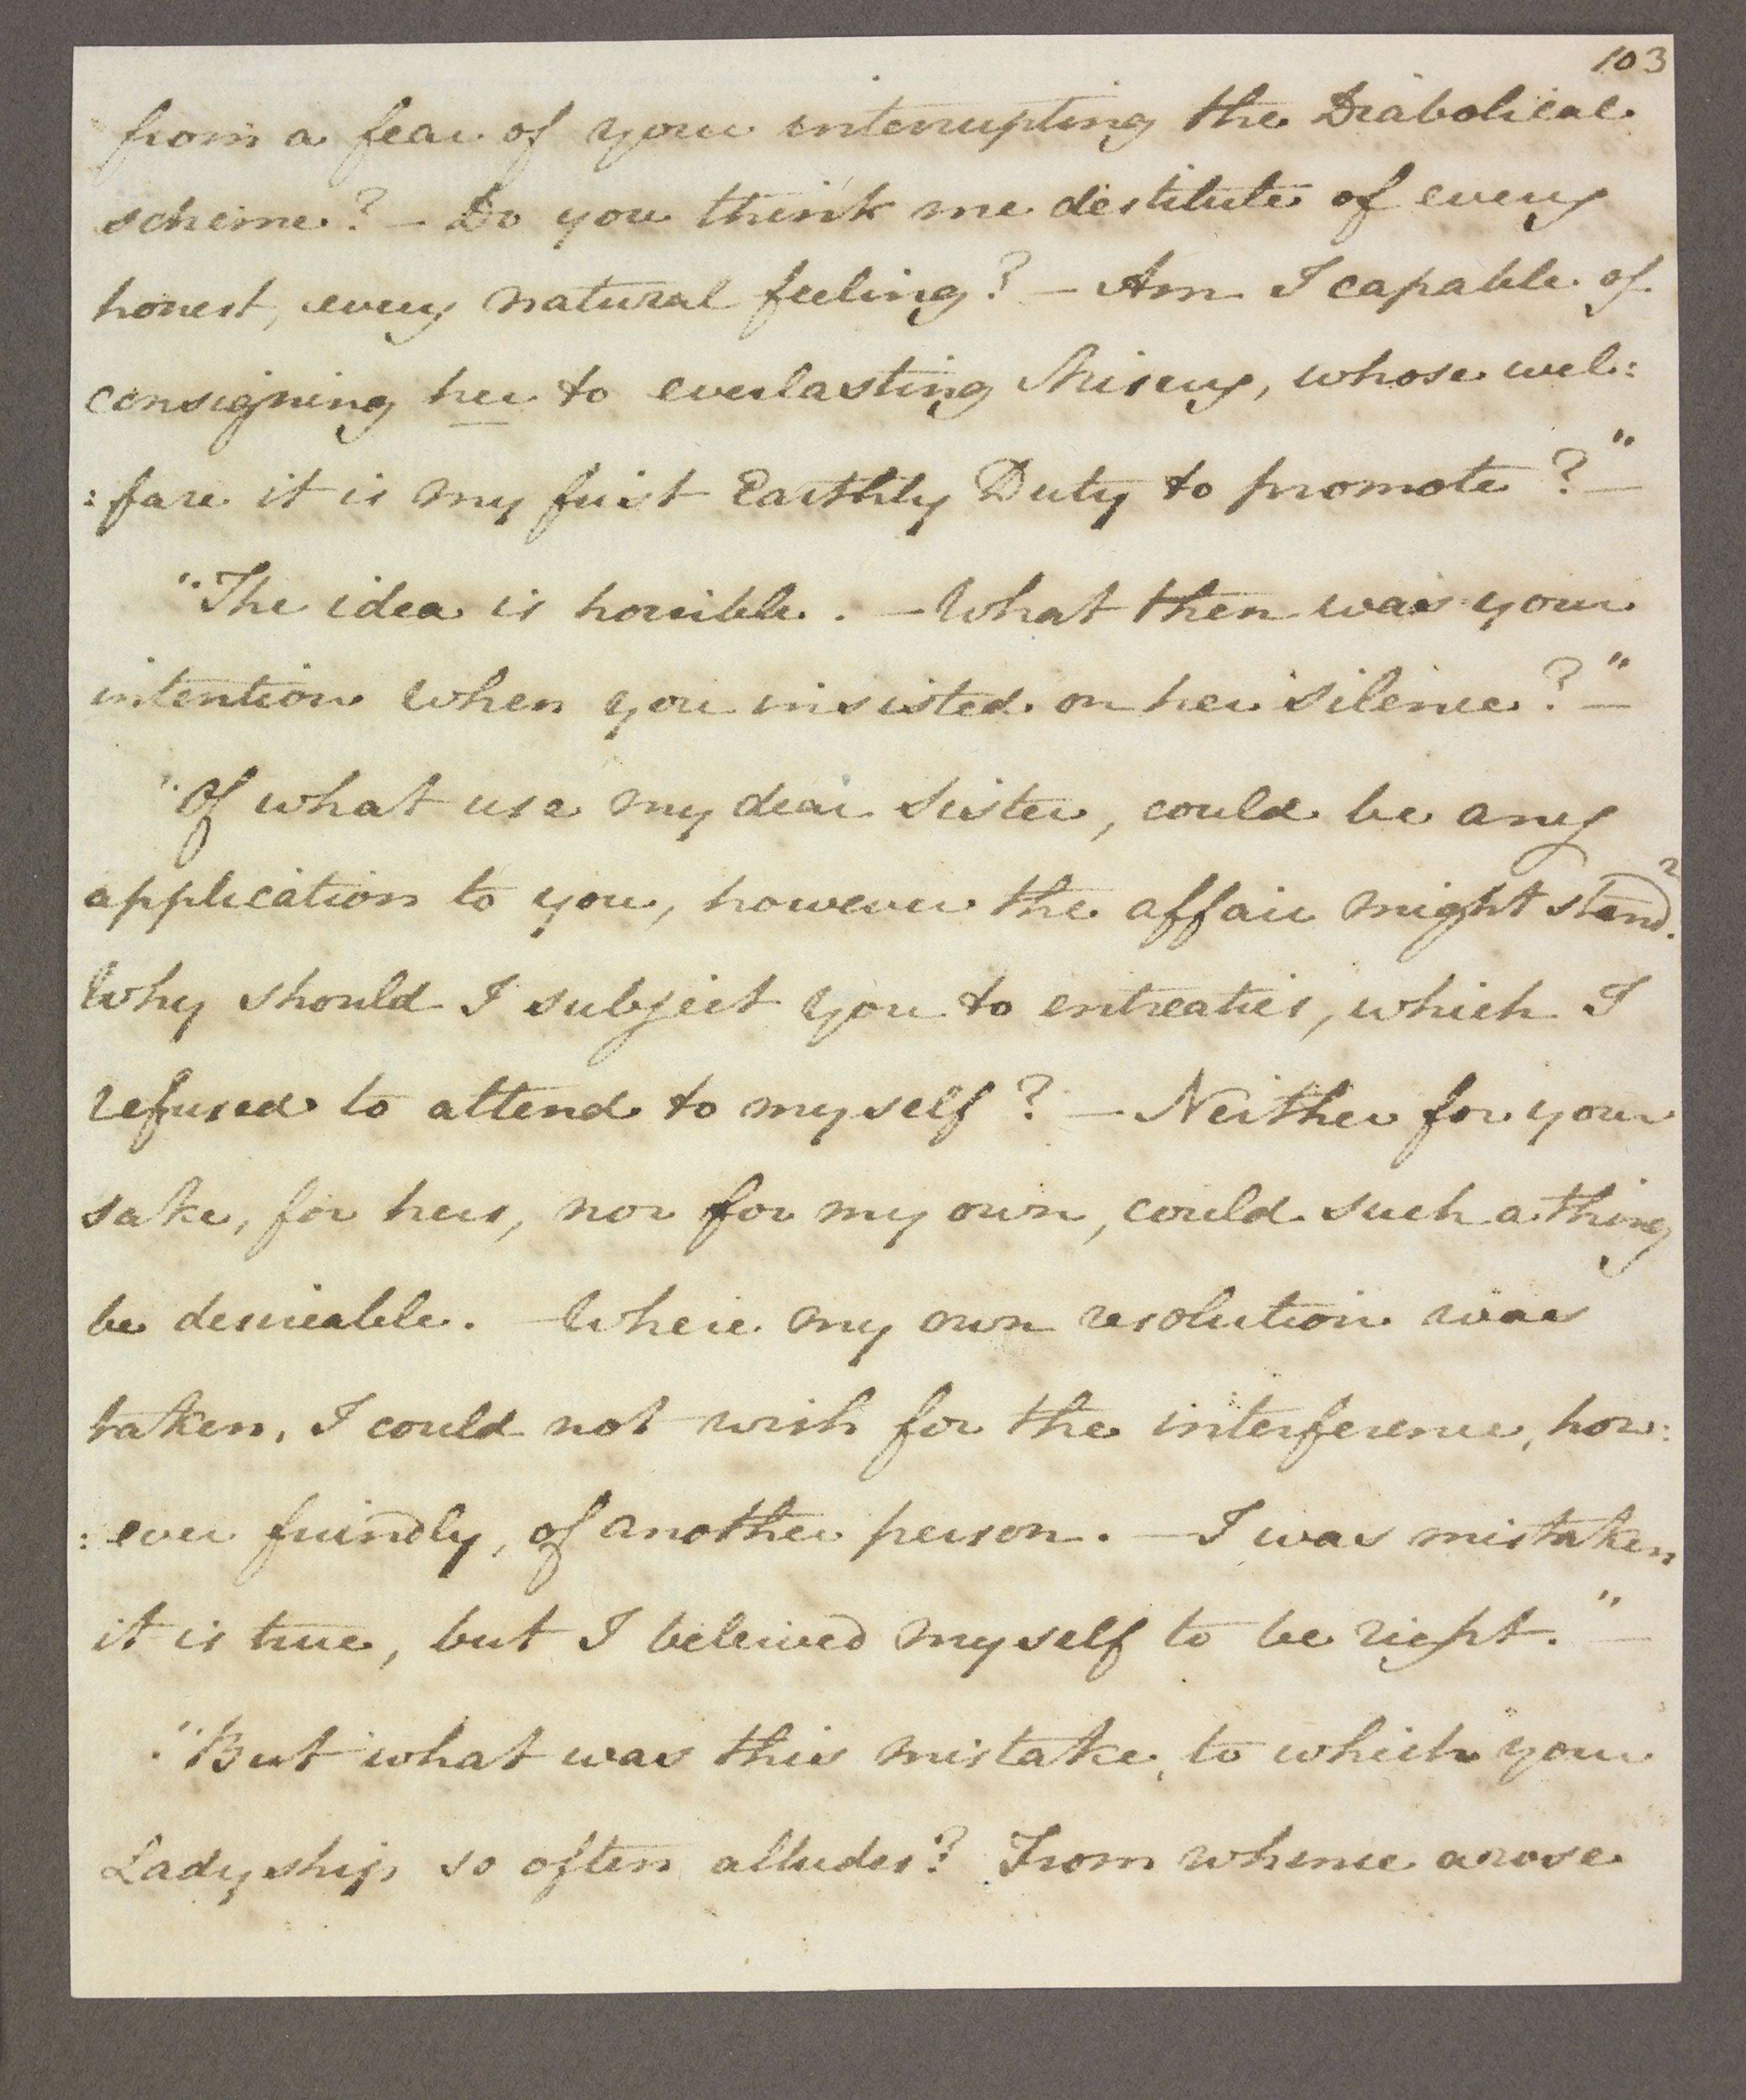 103
from a fear of your interrupting the Diabolical
scheme? – Do you think me destitute of every
honest, every natural feeling? – Am I capable of
consigning her to everlasting Misery, whose wel:
:fare it is my first Earthly Duty to promote?" –
"The idea is horrible. – What then was your
intention when you insisted on her silence?" –
"Of what use my dear Sister, could be any
application to you, however the affair might stand?
Why should I subject you to entreaties, which I
refused to attend to myself? – Neither for your
sake, for hers, nor for my own, could such a thing
be desireable. – Where my own resolution was
taken, I could not wish for the interference, how:
:ever friendly, of another person. – I was mistaken
it is true, but I beleived myself to be right." –
"But what was this mistake, to which your
Ladyship so often alludes? From whence arose